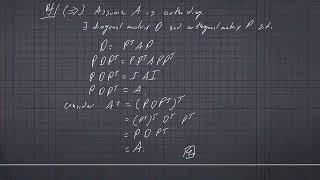 Pf/ (⇒) Assume A is ortho diag.
∃ diagonal matrix D and orthogonal matrix P s.t.
D = PᵀAP
PDPᵀ = PPᵀAPPᵀ
PDPᵀ = IAI
PDPᵀ = A.
consider Aᵀ = (PDPᵀ)ᵀ
= (Pᵀ)ᵀ Dᵀ Pᵀ
= PDPᵀ
= A.